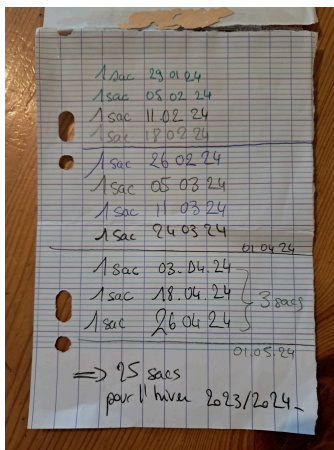 1 sac 29 01 24
1 sac 05 02 24
1 sac 11 02 24
1 sac 18 02 24
1 sac 26 02 24
1 sac 05 03 24
1 sac 11 03 24
1 sac 24 03 24
01 04 24
1 sac 03.04.24
1 sac 18.04.24
3 sacs
1 sac 26 04 24
01.05.24
=> 25 sacs
pour l'hiver 2023/2024_